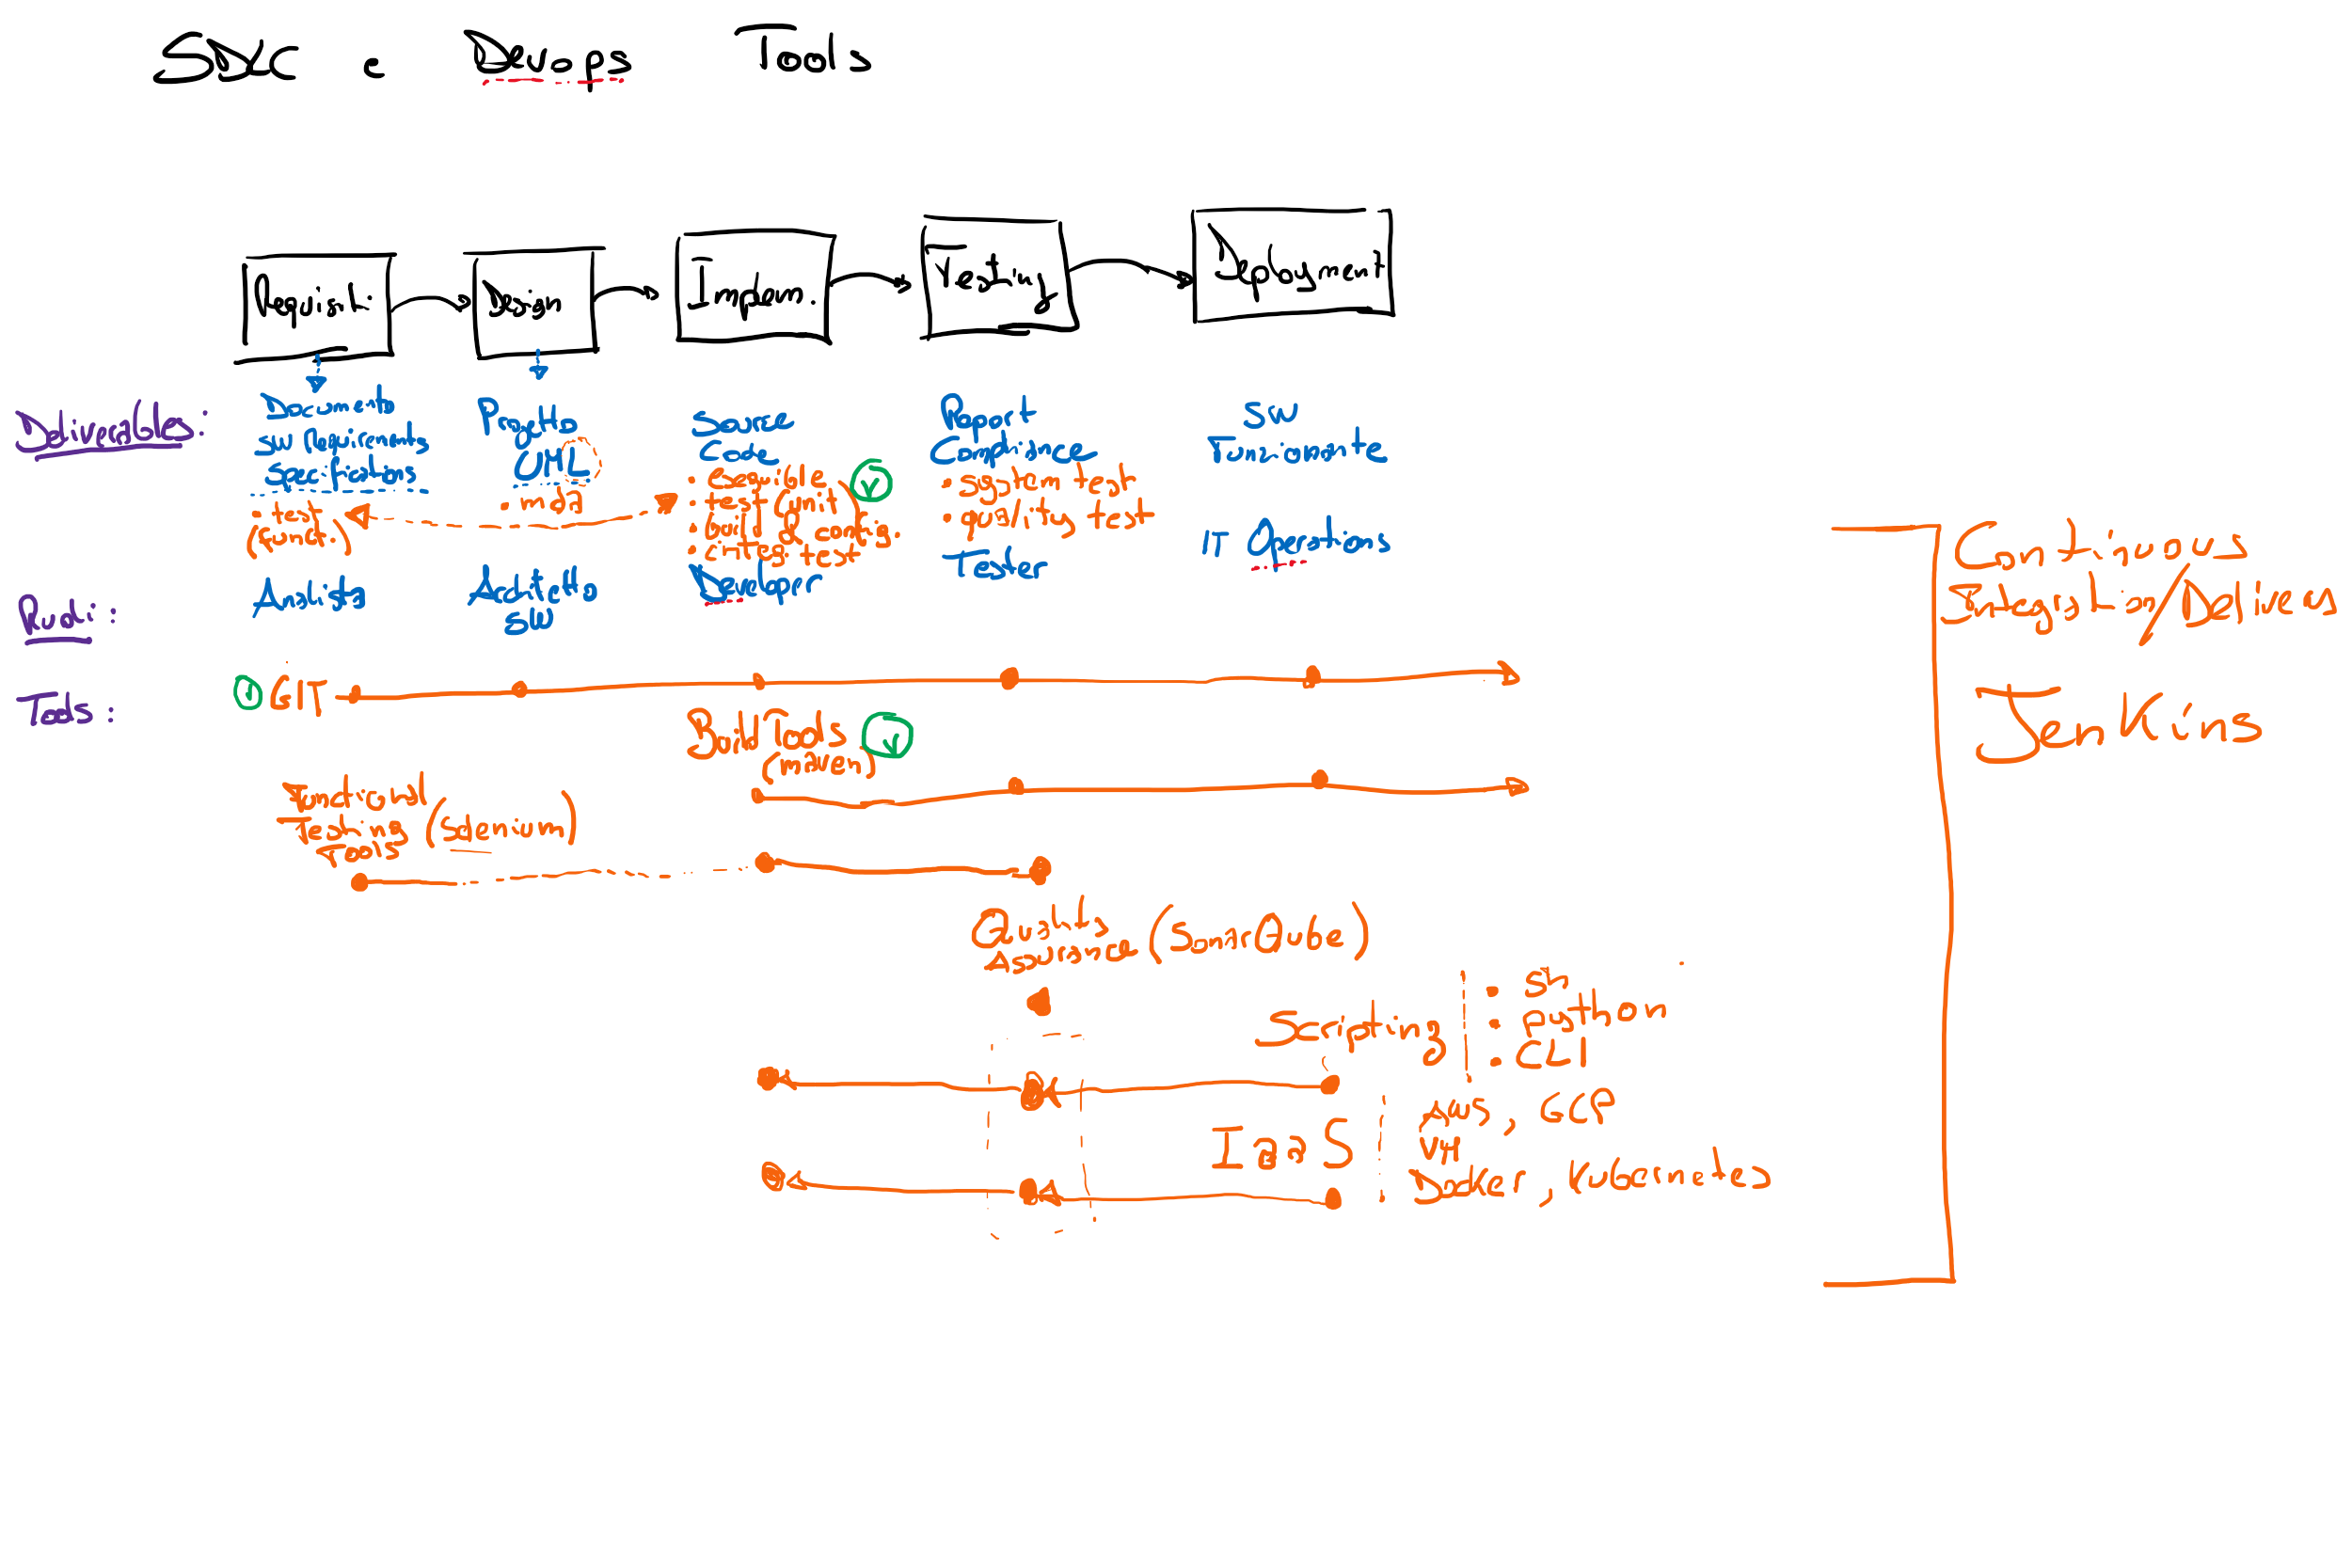 SDLC e Devops Tools
Requisiti
Design
Implem.
Testing
Deployment
Deliverables:
Documento
SW Requirements
Specifications
• test
(funct.)
Progetto
UML
• mda
Source
Code
• eseguible
• test (unit)
• build of config.
• integ. test
Report
Compliance
• system test
• quality test
SW
Funzionante
Ruoli:
Analista
Architetto
SW
Developer
Tester
IT Operations
Tools:
GIT
Build Tools
(maven)
Functional
Testing (Selenium)
Tools
Quality
Assurance (SonarQube)
Scripting
• sh
• Python
• CLI
IaaS
AWS, GCP
VM
Docker, Kubernetes
Continuous
Integration/Delivery
Jenkins